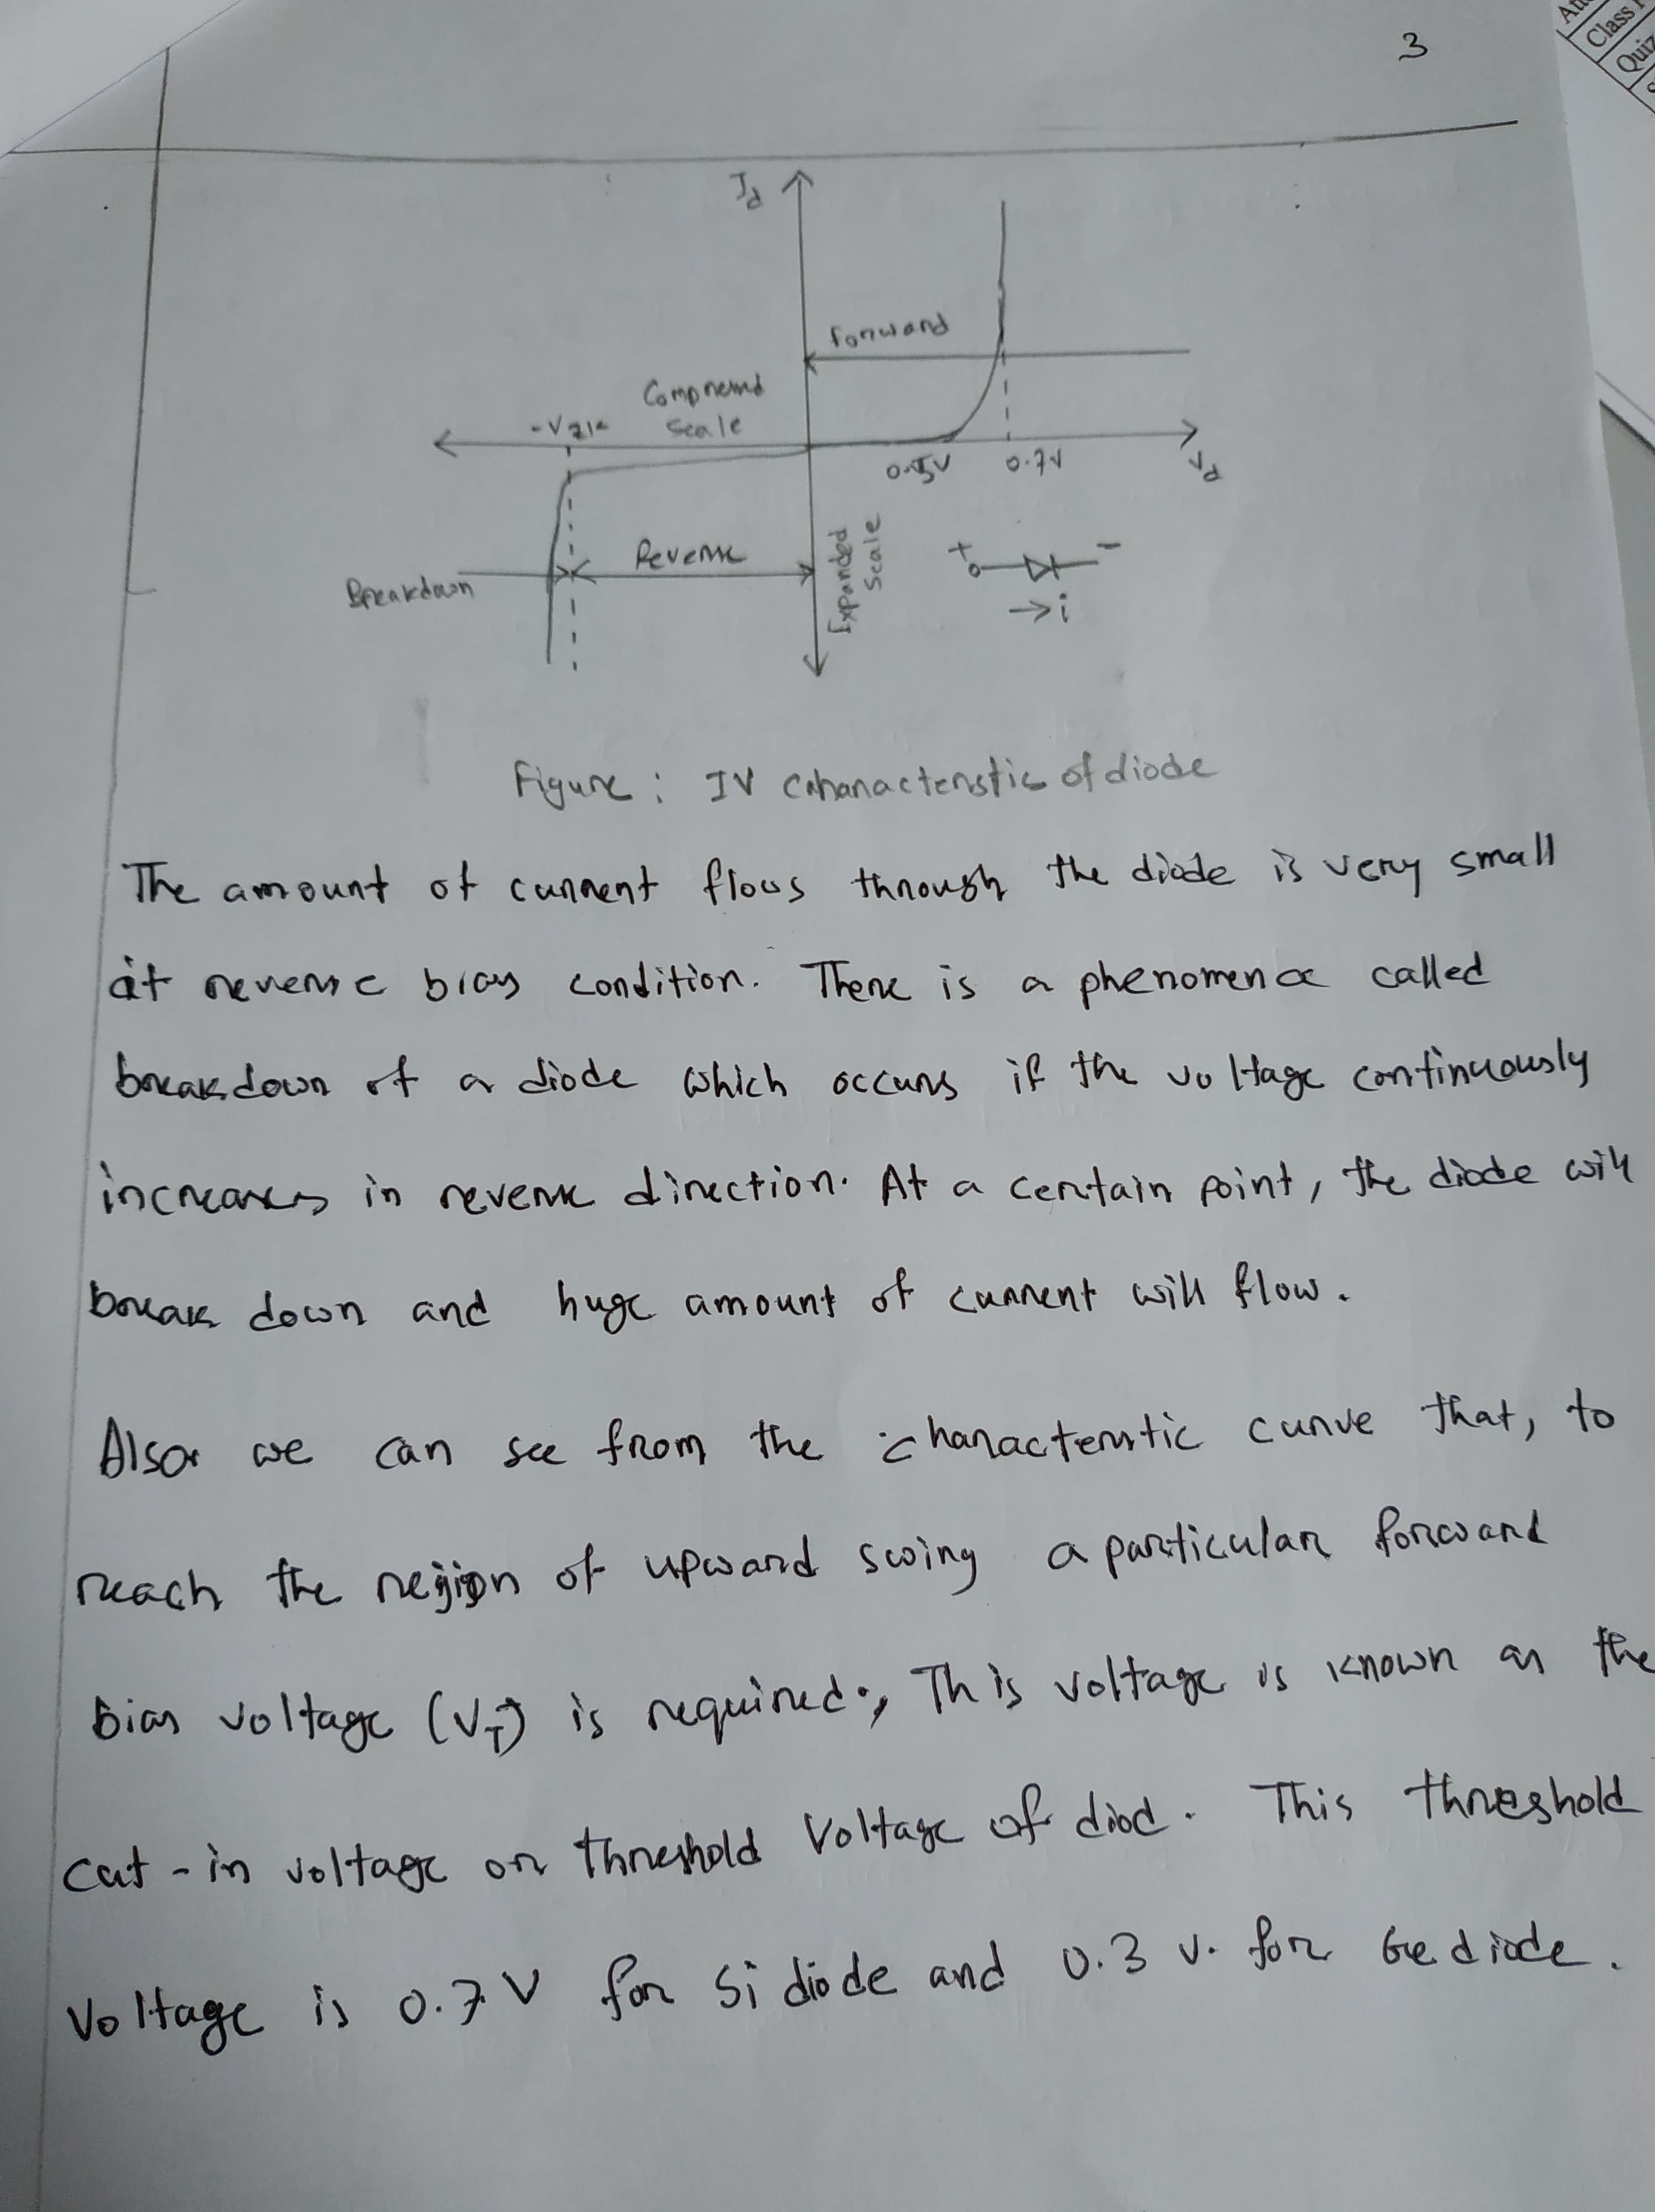 3
Id
forward
Compressed
Scale
-Vzk
0.5V
0.7V
Vd
Reverse
Breakdown
Expanded
Scale
+
-
→i
Figure: IV Characteristic of diode
The amount of current flows through the diode is very small
at reverse bias condition. There is a phenomena called
breakdown of a diode which occurs if the voltage continuously
increases in reverse direction. At a certain point, the diode will
break down and huge amount of current will flow.
Also we can see from the characteristic curve that, to
reach the region of upward swing a particular forward
bias voltage (VT) is required. This voltage is known as the
cut-in voltage or threshold Voltage of diod. This threshold
Voltage is 0.7V for Si diode and 0.3 v. for Ge diode.
Class
Quiz